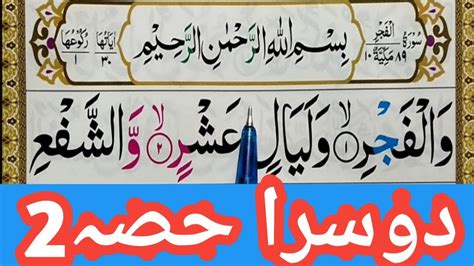 سُوْرَةُ الْفَجْرِ
٨٩ مَكِّيَّةٌ ١٠
بِسْمِ اللّٰهِ الرَّحْمٰنِ الرَّحِيْمِ
اٰيَاتُهَا رُكُوْعُهَا
٣٠ ١
وَالْفَجْرِۙ ۝١ وَلَيَالٍ عَشْرٍۙ ۝٢ وَّالشَّفْعِ
دوسرا حصہ 2